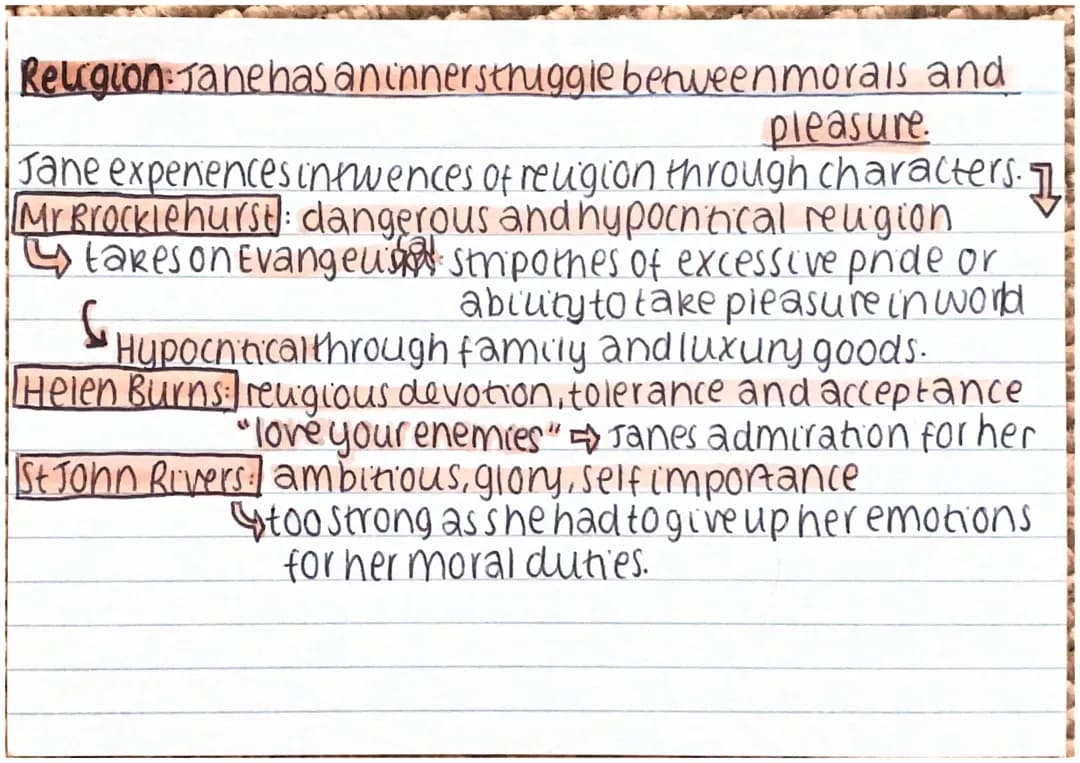 Religion: Jane has an inner struggle between morals and
pleasure.
Jane experiences influences of religion through characters.
Mr Brocklehurst: dangerous and hypocritical religion
takes on Evangelical strip others of excessive pride or
ability to take pleasure in world
Hypocritical through family and luxury goods.
Helen Burns: religious devotion, tolerance and acceptance
"love your enemies" ⇨ Janes admiration for her
St John Rivers: ambitious, glory, self importance
too strong as she had to give up her emotions
for her moral duties.